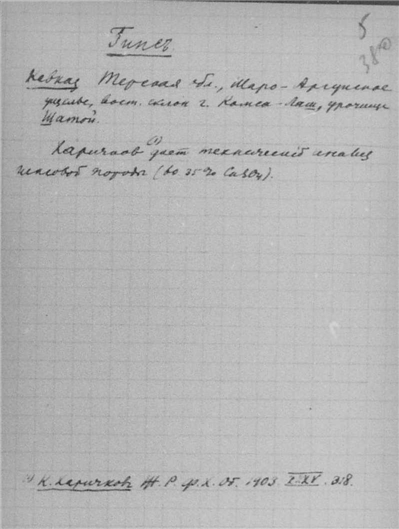 5
380
Гипсъ.
Кавказ Терская обл., Шаро-Аргунское
ущелье, вост. склон г. Комса-Лам, урочище
Шатой.
Харичков ¹) дает технический анализ
гипсовой породы (до 35% CaSO4).
¹) К. Харичковъ Ж. Р. Ф. Х. Об. 1903 XV. 38.